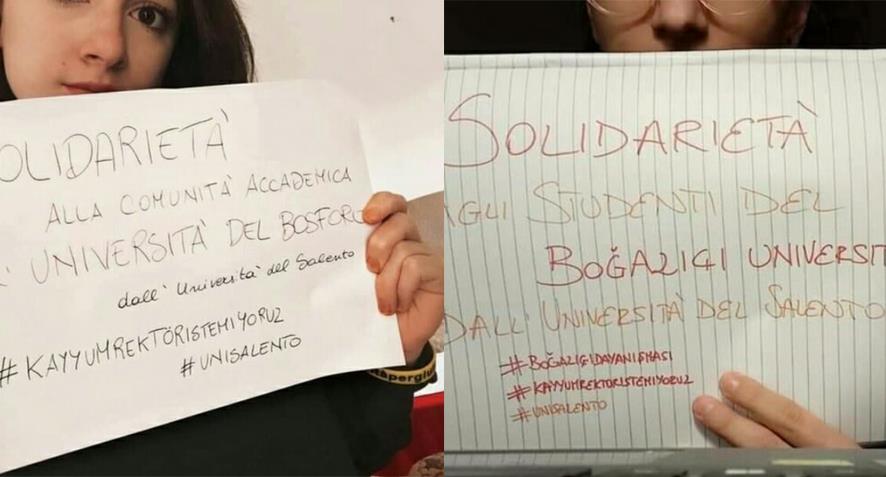 OLIDARIETÀ
ALLA COMUNITÀ ACCADEMICA
L' UNIVERSITÀ DEL BOSFORO
dall' Università del Salento
#KAYYUMREKTÖRISTEMIYORUZ
#UNISALENTO
aspergiu
SOLIDARIETÀ
AGLI STUDENTI DEL
BOĞAZIÇI UNIVERSIT
DALL' UNIVERSITÀ DEL SALENTO
#BOĞAZIÇIDAYANIŞMASI
#KAYYUMREKTORISTEMIYORUZ
#UNISALENTO